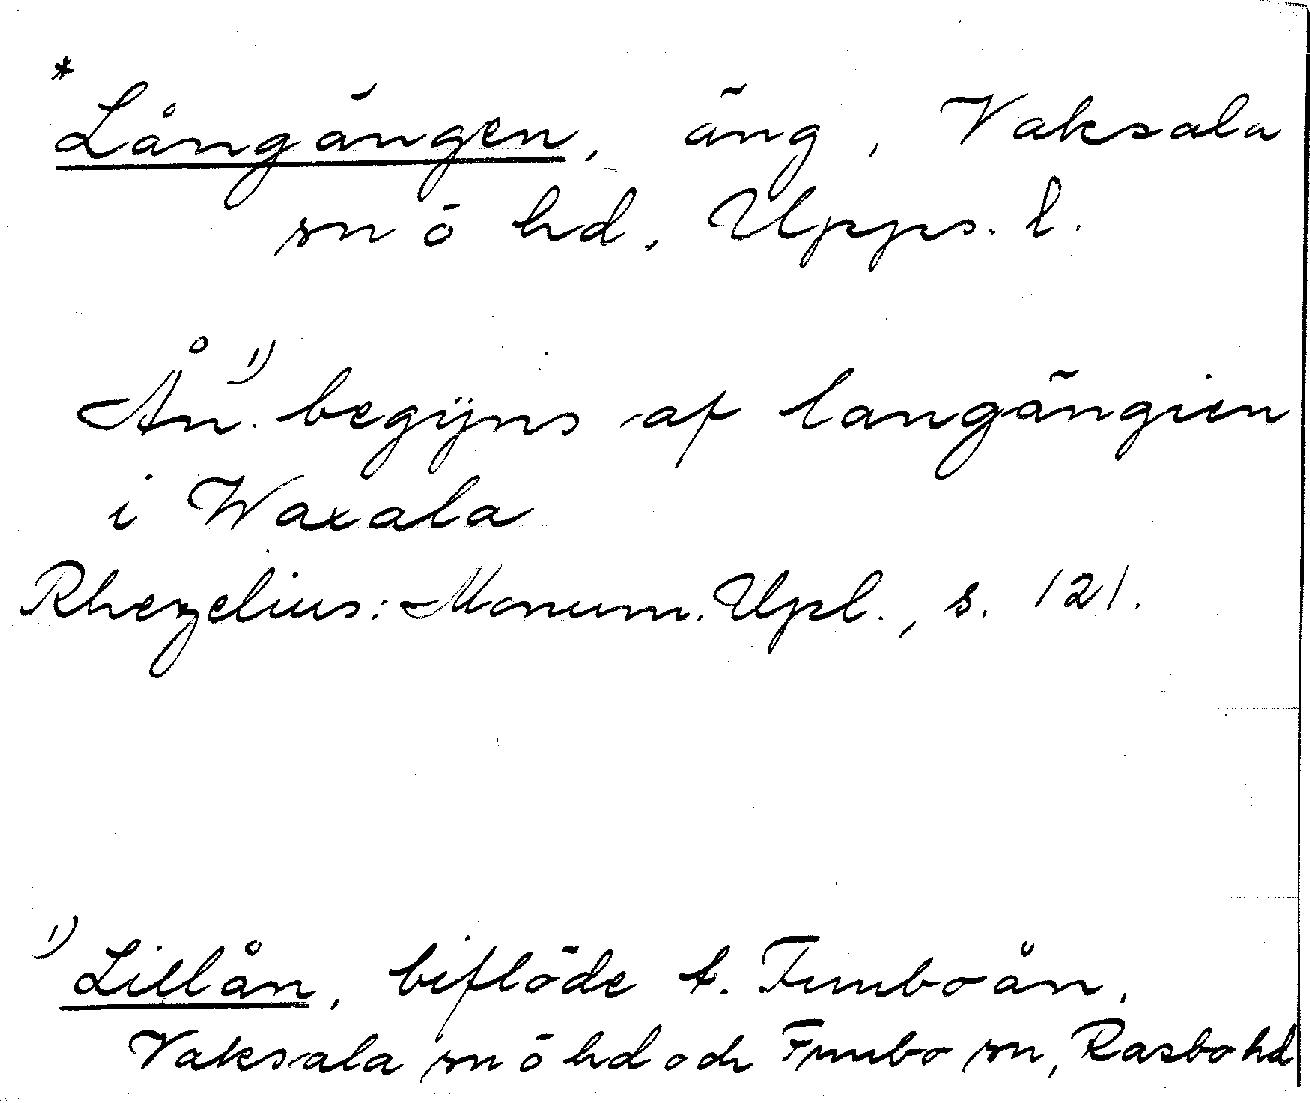 *
Långängen, äng, Vaksala
sn ö hd, Upps. l.
Ån 1) begijns af langängien
i Waxala
Rhezelius: Monum. Upl., s. 121.
1) Lillån, biflöde t. Funboån,
Vaksala sn ö hd och Funbo sn, Rasbo hd